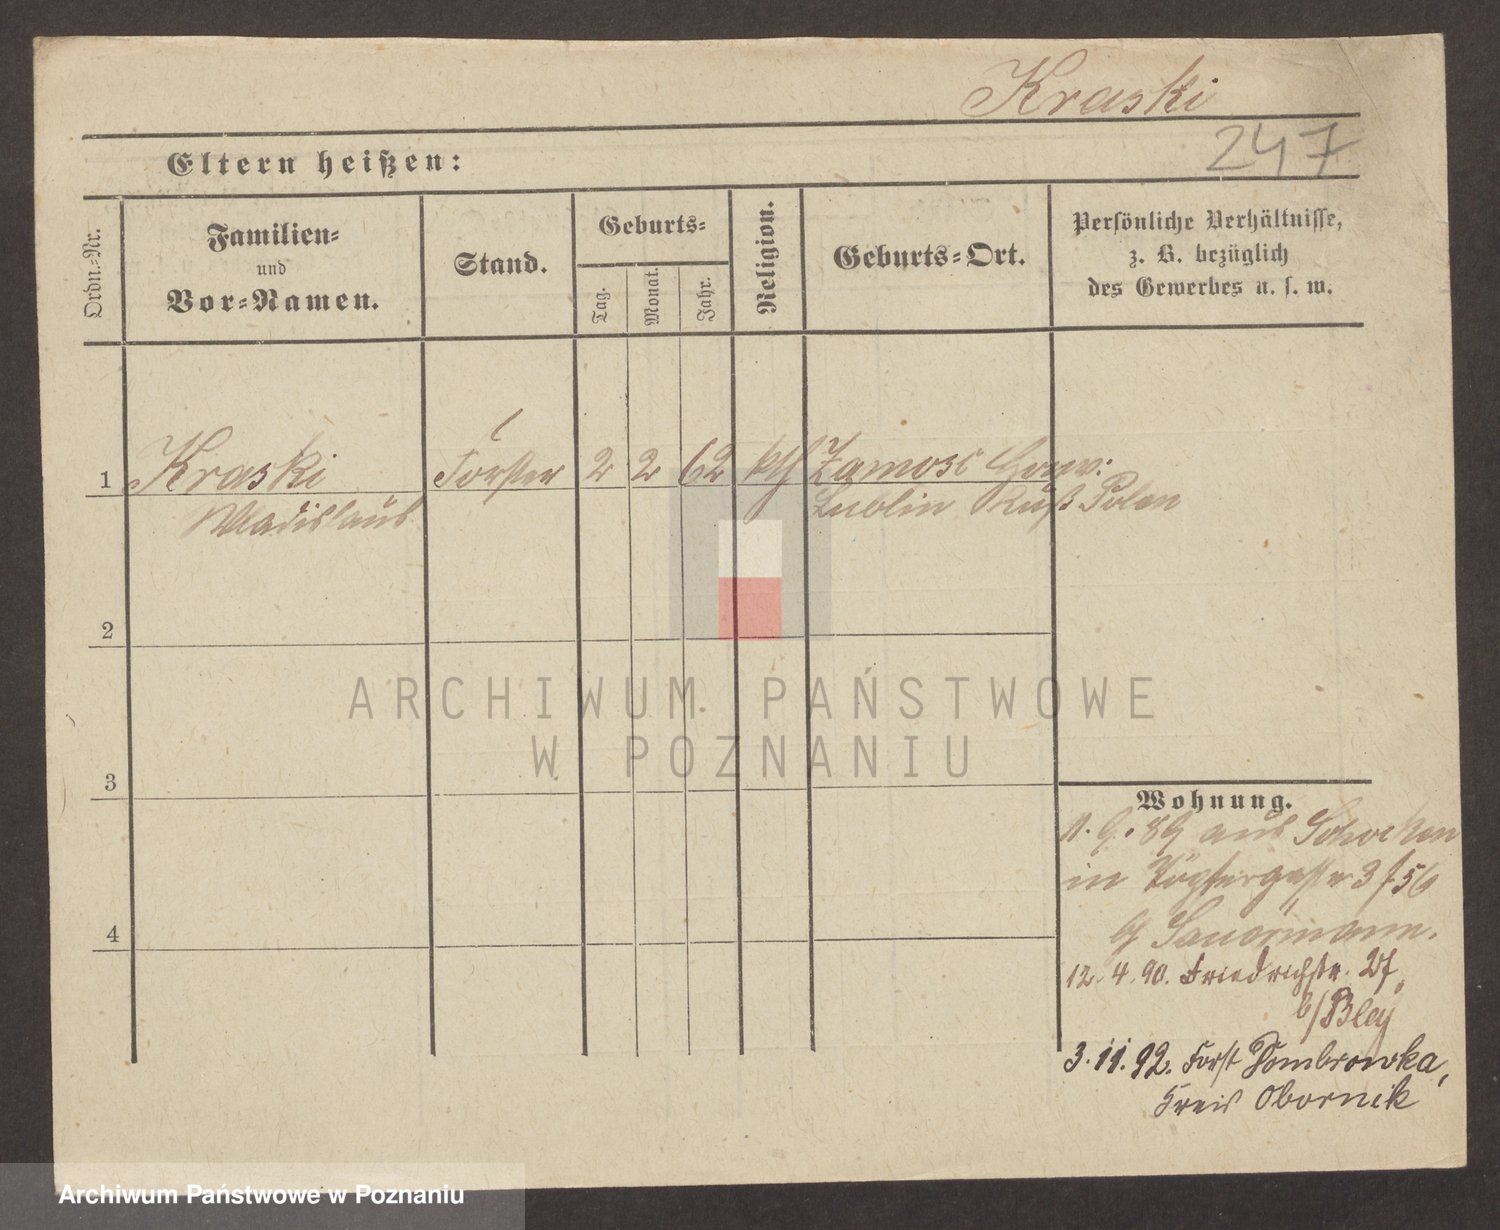 Kraski
247
Eltern heißen:
Ordn.-Nr.
Familien-
und
Vor-Namen.
Stand.
Geburts-
Tag.
Monat.
Jahr.
Religion.
Geburts-Ort.
Persönliche Verhältnisse,
z. B. bezüglich
des Gewerbes u. s. w.
1 Kraski Förster 2 2 62 kth Zamosc Gouv:
Wladislaus Lublin Ruß Polen
2
ARCHIWUM PAŃSTWOWE
W POZNANIU
3
Wohnung.
11. 9. 89 aus Schocken
in Töpfergasse 3 f 56
4
12. 4. 90. Friedrichstr. 27
b/ Bley
3. 11. 92. Forst Dombrowka,
Kreis Obornik
Archiwum Państwowe w Poznaniu